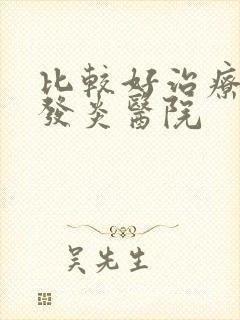 比較好治療
發炎醫院
吴先生